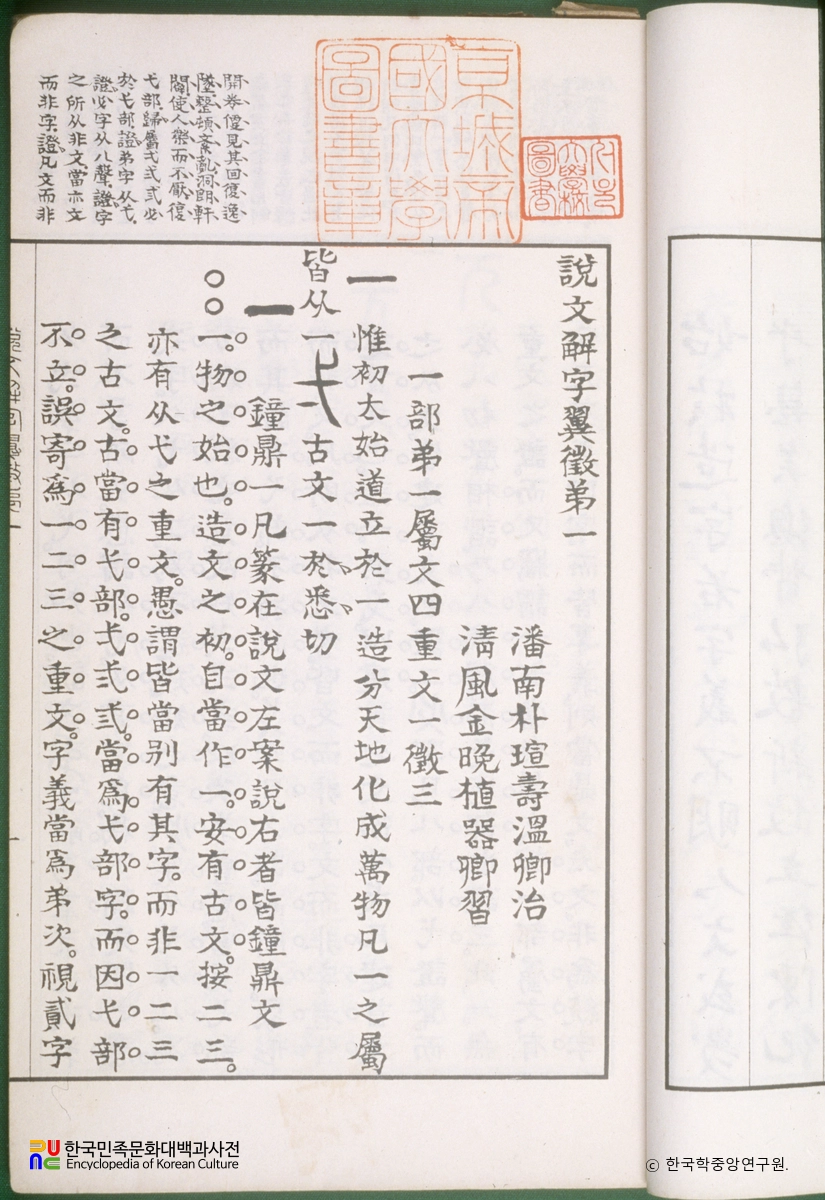 開券僾見其回復逸
墜整頓紊亂洞朗軒
闓使人樂而不厭復
弋部歸屬弌弍弎必
於弋部證弟字从弋
證必字从八聲證字
之所从非文當亦文
而非字證凡文而非
京城帝
國大學
圖書章
大學校
圖書
說文解字翼徵第一
潘南朴瑄壽溫卿治
淸風金晚植器卿習
一部弟一屬文四重文一徵三
一惟初太始道立於一造分天地化成萬物凡一之屬
皆从一弌古文一於悉切
一鐘鼎一凡篆在說文左案說右者皆鐘鼎文
一。物之始也。造文之初。自當作一。安有古文。按二三。
亦有从弋之重文。愚謂皆當別有其字。而非一二三
之古文。古當有弋部。弌弍弎。當爲弋部字。而因弋部
不立。誤寄爲一二三之重文。字義當爲弟次。視貳字
한국민족문화대백과사전
Encyclopedia of Korean Culture
ⓒ 한국학중앙연구원.